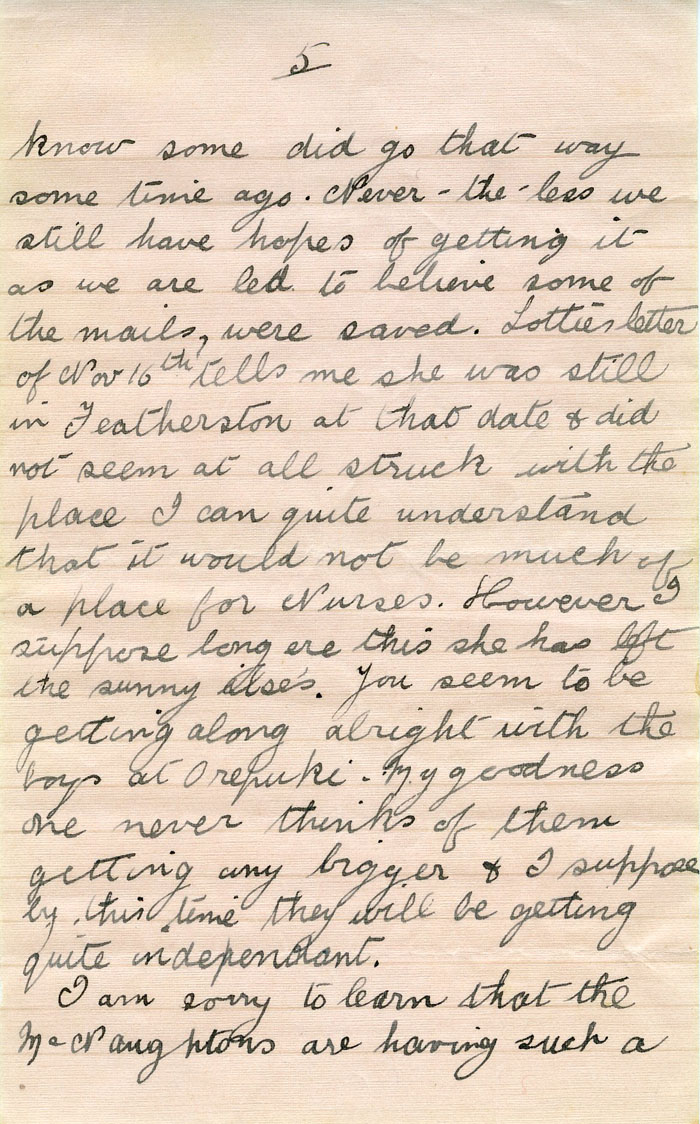 5
know some did go that way
some time ago. Never-the-less we
still have hopes of getting it
as we are led to believe some of
the mails, were saved. Lotties letter
of Nov 16th tells me she was still
in Featherston at that date & did
not seem at all struck with the
place I can quite understand
that it would not be much of
a place for Nurses. However I
suppose long ere this she has left
the sunny isles. You seem to be
getting along alright with the
boys at Orepuki. My goodness
one never thinks of them
getting any bigger & I suppose
by this time they will be getting
quite independant.
I am sorry to learn that the
McNaughtons are having such a